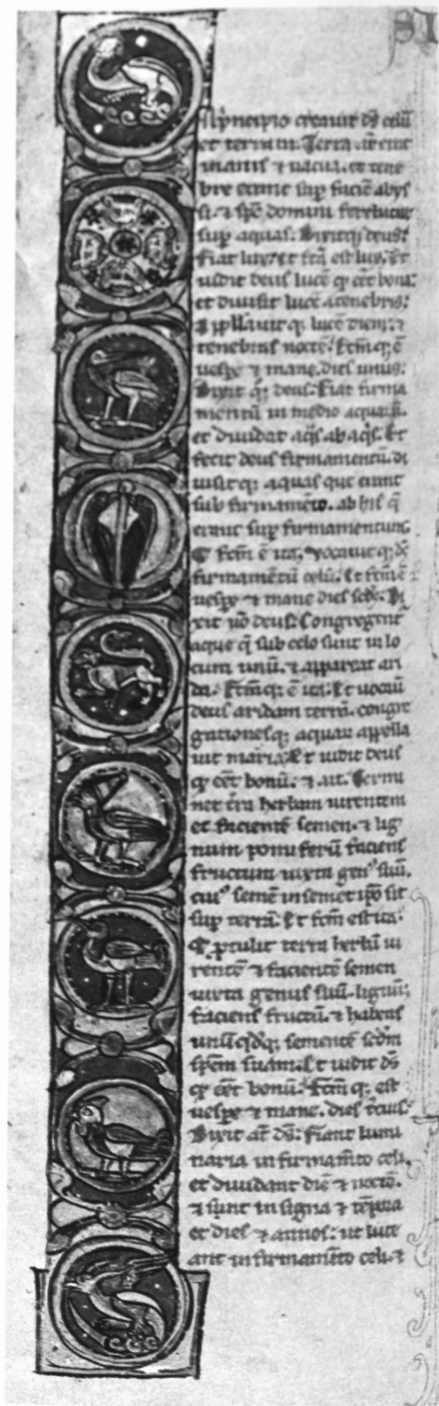 SI
N p̄ncipio creauit dꝰ celū
et terram. Terra aūt erat
inanis ⁊ uacua. et tene
bre erant sup faciē abys
si. ⁊ spc̄ domini ferebatur
sup aquas. Dixitq; deus.
Fiat lux. et fc̄a est lux. Et
uidit deus lucē q̄ eēt bona.
et diuisit lucē a tenebris.
Appllauit q; lucē diem. ⁊
tenebras noctē. Fc̄m q; ē
uesp̄e ⁊ mane. dies unus.
Dixit q; deus. Fiat firma
mentū in medio aquaꝝ.
et diuidat aq̄s ab aq̄s. Et
fecit deus firmamentū. di
uisit q; aquas que erant
sub firmamēto. ab his q̄
erant sup firmamentum.
⁊ fc̄m ē ita. uocauit q; dꝰ
firmamētū celū. Et fc̄m ē
uesp̄e ⁊ mane dies scdꝰ. Di
xit uō deus. Congregent̄
aque q̄ sub celo sunt in lo
cum unū. ⁊ appareat ari
da. Fc̄m q; ē ita. Et uocauit
deus aridam terrā. congre
gationesq; aquaꝝ appella
uit maria. Et uidit deus
q̄ eēt bonū. ⁊ ait. Germi
net t̄ra herbam uirentem
et faciente semen. ⁊ lig
num pomiferū faciens
fructum iuxta genꝰ suū.
cuiꝰ semē in semet ipō sit
sup terrā. Et fc̄m est ita.
⁊ p̄tulit terra herbā ui
rentē ⁊ faciente semen
iuxta genus suū. lignūq;
faciens fructū. ⁊ habens
unūq̄dq; sementē scdm
spēm suam. Et uidit dꝰ
q̄ eēt bonū. Fc̄m q; est
uesp̄e ⁊ mane. dies t̄cius.
Dixit aūt dꝰ. Fiant lumi
naria in firmam̄to celi.
et diuidant diē ⁊ noctē.
⁊ sint in signa ⁊ tēpora
et dies ⁊ annos. ut luce
ant in firmamēto celi. ⁊